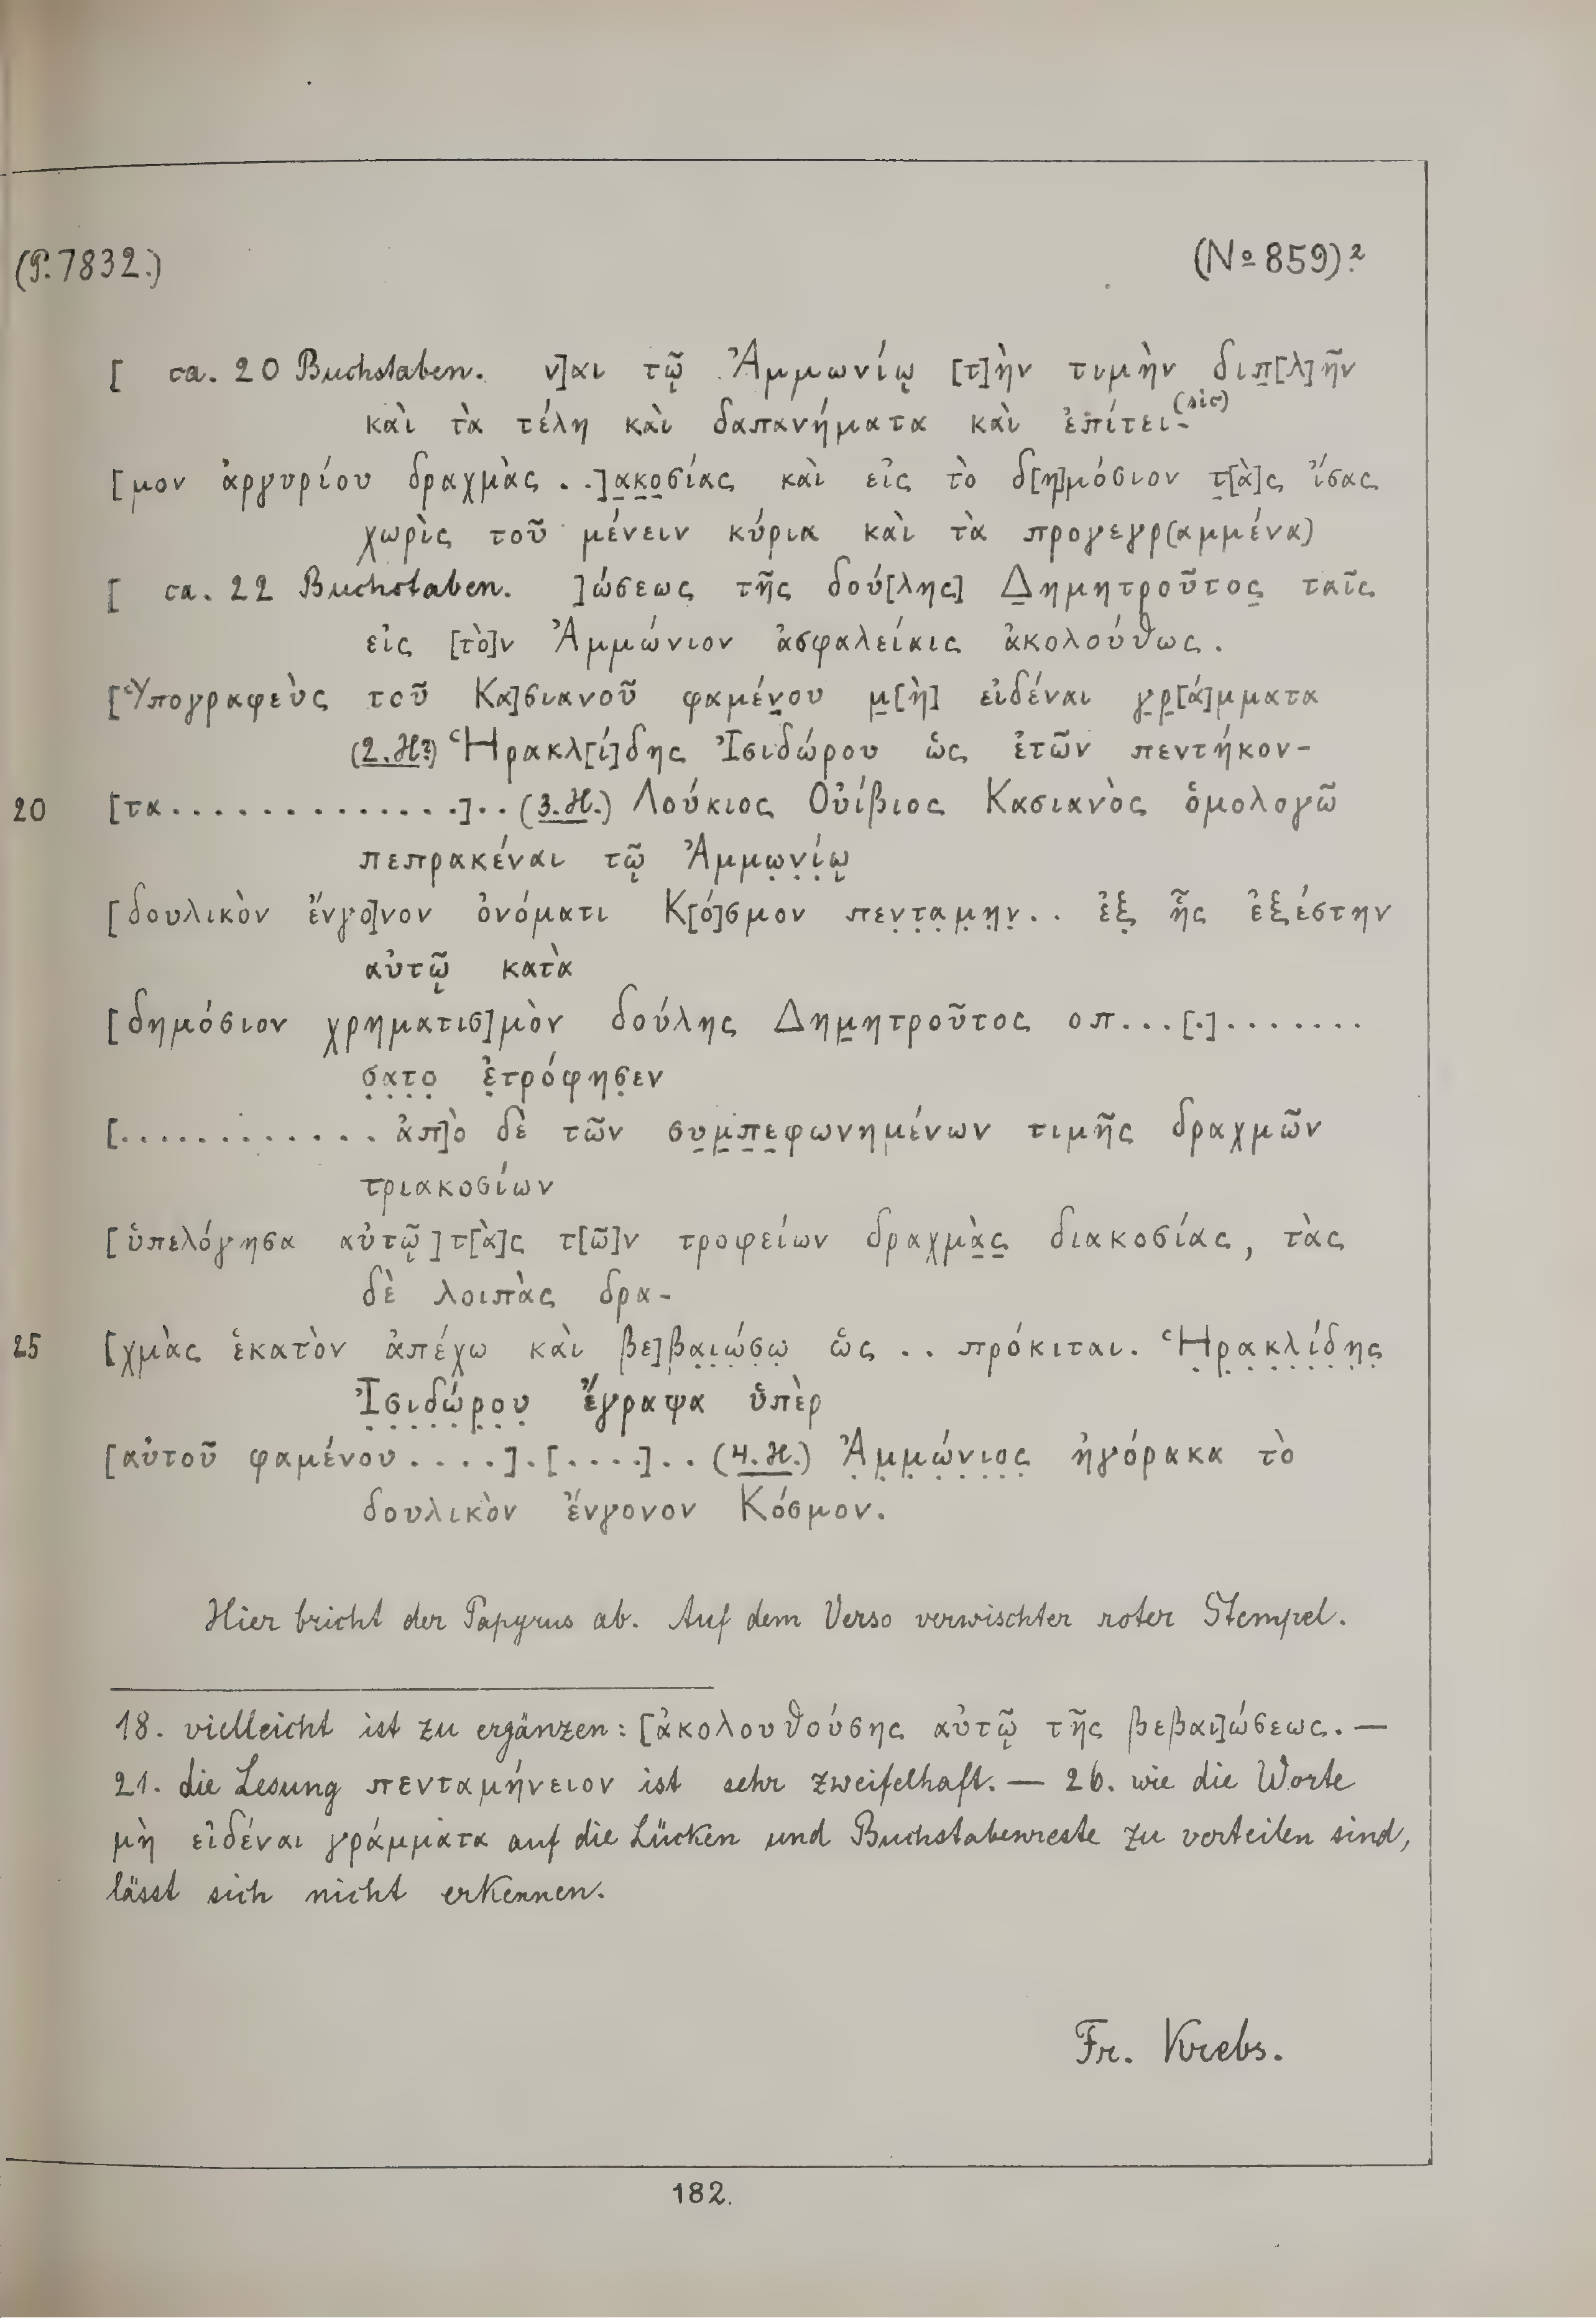 (P. 7832.) (No 859)².
[ ca. 20 Buchstaben. ν]αι τῷ Ἀμμωνίῳ [τ]ὴν τιμὴν διπ̣[λ]ῆν
καὶ τὰ τέλη καὶ δαπανήματα καὶ ἐπίτει- (sic)
[μον ἀργυρίου δραχμὰς . .]α̣κ̣ο̣σίας καὶ εἰς τὸ δ[η]μόσιον τ̣[ὰ]ς ἴσας
χωρὶς τοῦ μένειν κύρια καὶ τὰ προγεγρ(αμμένα)
[ ca. 22 Buchstaben. ]ώσεως τῆς δού[λης] Δ̣ημητροῦτος̣ ταῖς
εἰς [τὸ]ν Ἀμμώνιον ἀσφαλείαις ἀκολούθως.
[Ὑπογραφεὺς τοῦ Κα]σιανοῦ φαμέν̣ου μ̣[ὴ] εἰδέναι γ̣ρ̣[ά]μματα
(2. H?) Ἡρακλ[ί]δης Ἰσιδώρου ὡς ἐτῶν πεντήκον-
20 [τα . . . . . . . . . . . . . .] . . (3. H.) Λούκιος Οὐίβιος Κασιανὸς ὁμολογῶ
πεπρακέναι τῷ Ἀμμω̣ν̣ί̣ῳ
[δουλικὸν ἔνγο]νον ὀνόματι Κ[ό]σμον πεν̣τ̣α̣μ̣η̣ν̣ . . ἐξ̣ ἧς ἐξέστην
αὐτῷ κατὰ
[δημόσιον χρηματισ]μὸν δούλης Δημ̣ητροῦτος οπ . . . [.] . . . . . . .
σ̣α̣τ̣ο̣ ἐ̣τρόφησ̣εν
[. . . . . . . . . . . . . ἀπ]ὸ δὲ τῶν συ̣μ̣π̣ε̣φωνημένων τιμῆς δραχμῶν
τριακοσίων
[ὑπελόγησα αὐτῷ] τ[ὰ]ς τ[ῶ]ν τροφείων δραχμὰ̣ς̣ διακοσίας, τὰς
δὲ λοιπὰς δρα-
25 [χμὰς ἑκατὸν ἀπέχω καὶ βε]βα̣ι̣ώ̣σ̣ω̣ ὡς . . πρόκιται. Ἡ̣ρ̣α̣κ̣λ̣ί̣δ̣η̣ς̣
Ἰ̣σ̣ι̣δ̣ώ̣ρ̣ο̣υ̣ ἔγραψα ὑπὲρ
[αὐτοῦ φαμένου . . . .] . [. . . .] . . (4. H.) Ἀ̣μ̣μ̣ώ̣ν̣ι̣ο̣ς̣ ἠγόρακα τὸ
δουλικὸν ἔνγονον Κόσμον.
Hier bricht der Papyrus ab. Auf dem Verso verwischter roter Stempel.
18. vielleicht ist zu ergänzen: [ἀκολουθούσης αὐτῷ τῆς βεβαι]ώσεως. —
21. die Lesung πενταμήνειον ist sehr zweifelhaft. — 26. wie die Worte
μὴ εἰδέναι γράμματα auf die Lücken und Buchstabenreste zu verteilen sind,
lässt sich nicht erkennen.
Fr. Krebs.
182.